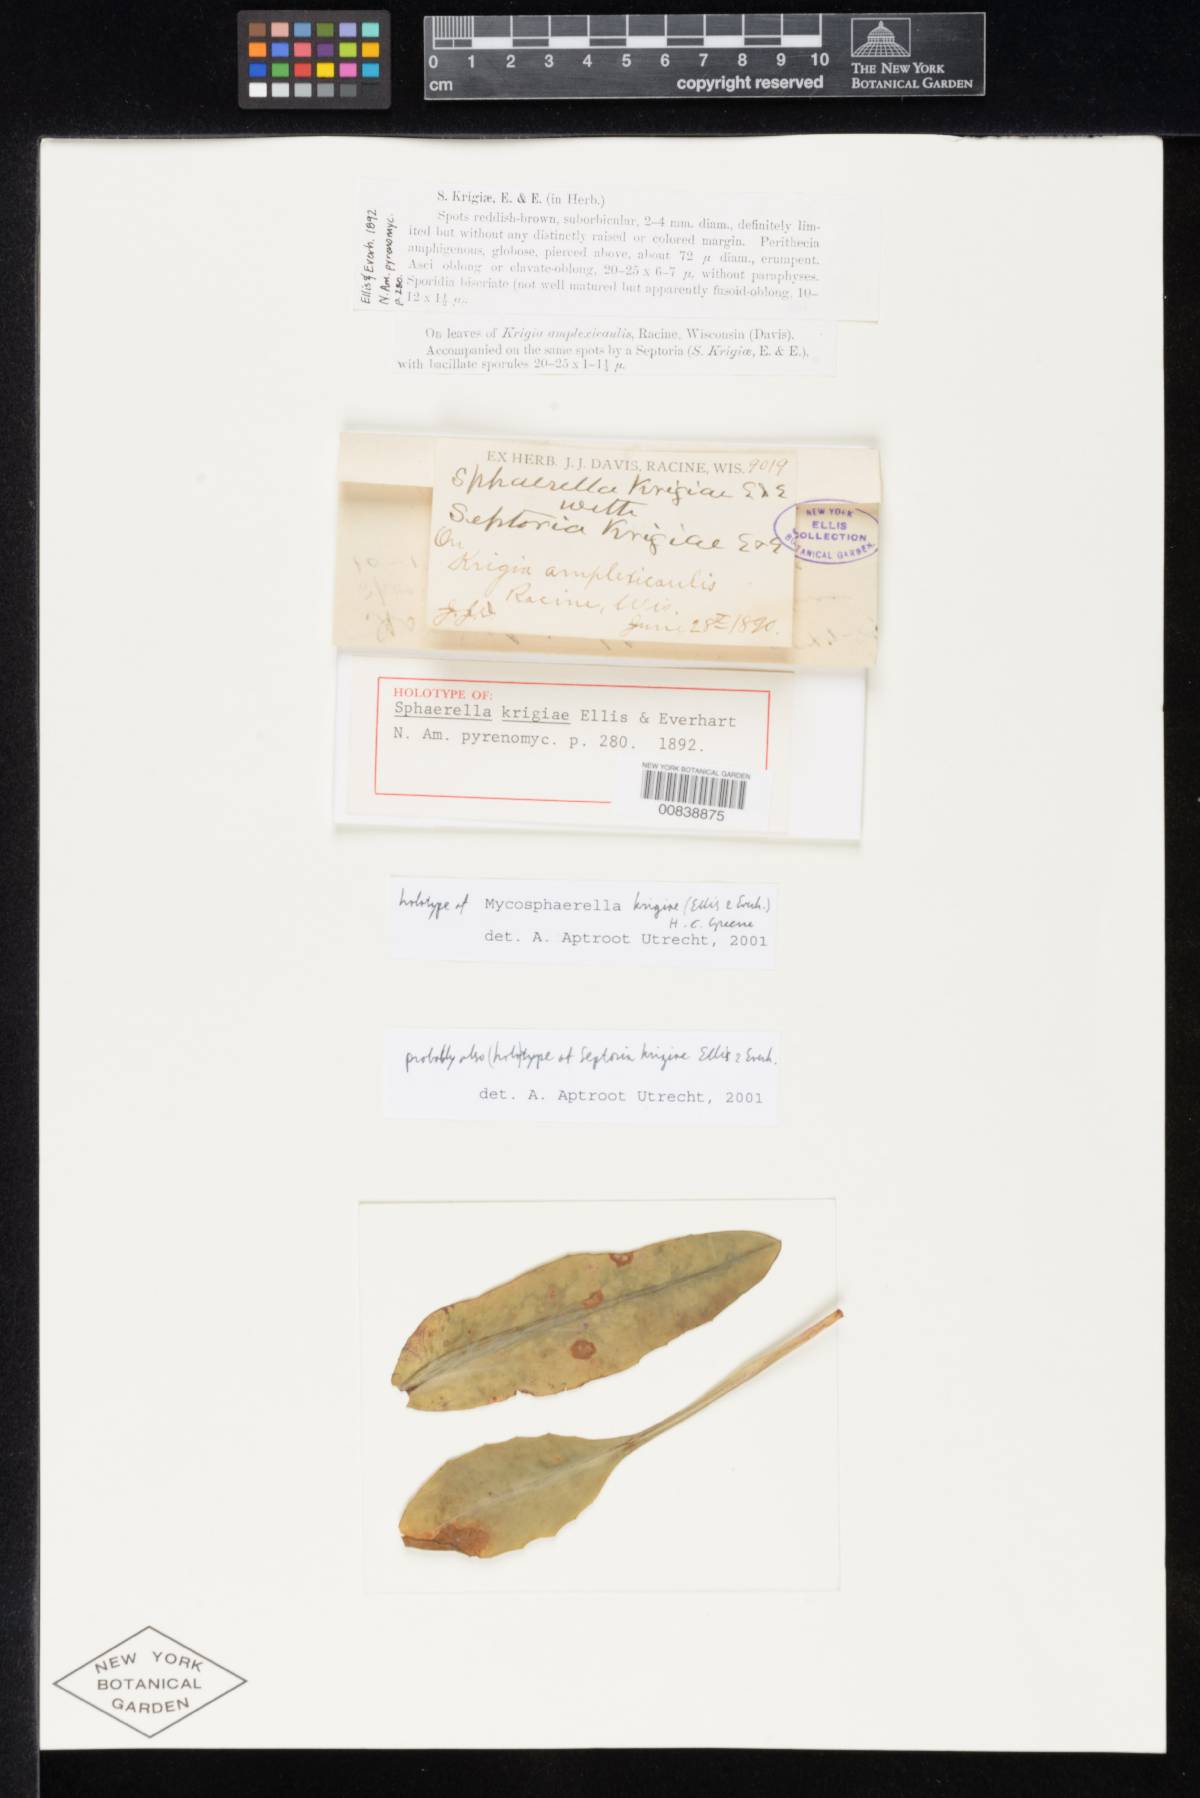 0 1 2 3 4 5 6 7 8 9 10
cm
copyright reserved
THE NEW YORK
BOTANICAL GARDEN
S. Krigiæ, E. & E. (in Herb.)
Spots reddish-brown, suborbicular, 2–4 mm. diam., definitely lim-
ited but without any distinctly raised or colored margin. Perithecia
amphigenous, globose, pierced above, about 72 µ diam., erumpent.
Asci oblong or clavate-oblong, 20–25 x 6–7 µ, without paraphyses.
Sporidia biseriate (not well matured but apparently fusoid-oblong, 10–
12 x 1½ µ).
Ellis & Everh. 1892
N. Am. pyrenomyc.
p. 280.
On leaves of Krigia amplexicaulis, Racine, Wisconsin (Davis).
Accompanied on the same spots by a Septoria (S. Krigiæ, E. & E.),
with bacillate sporules 20–25 x 1–1½ µ.
EX HERB. J. J. DAVIS, RACINE, WIS. 9019
Sphaerella Krigiae E & E
with
Septoria Krigiae E & E
On
Krigia amplexicaulis
Racine, Wis.
J.J.D June 28th 1890.
NEW YORK
ELLIS
COLLECTION
BOTANICAL GARDEN.
HOLOTYPE OF:
Sphaerella krigiae Ellis & Everhart
N. Am. pyrenomyc. p. 280. 1892.
NEW YORK BOTANICAL GARDEN
00838875
holotype of Mycosphaerella krigiae (Ellis & Everh.)
H. C. Greene
det. A. Aptroot Utrecht, 2001
probably also (holo)type of Septoria krigiae Ellis & Everh.
det. A. Aptroot Utrecht, 2001
NEW YORK
BOTANICAL
GARDEN